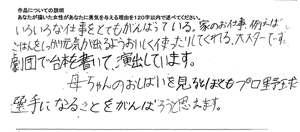 作品についての説明
あなたが描いた女性があなたに勇気を与える理由を120字以内で述べてください。
いろいろな仕事をとてもがんばっている。家のお仕事、例えば
ごはんをしっかり元気が出るようおいしく作ったりしてくれる、大スターです。
劇団で台本を書いて、演出しています。
母ちゃんのおしばいを見るとぼくもプロ野球
選手になることをがんばろうと思えます。